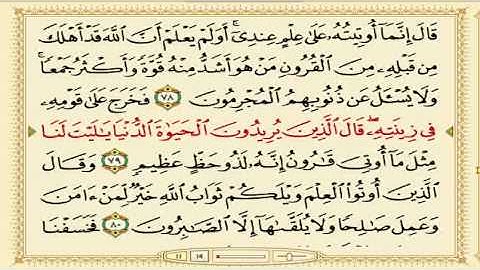 قَالَ إِنَّمَآ أُوتِيتُهُۥ عَلَىٰ عِلْمٍ عِندِىٓ ۚ أَوَلَمْ يَعْلَمْ أَنَّ ٱللَّهَ قَدْ أَهْلَكَ
مِن قَبْلِهِۦ مِنَ ٱلْقُرُونِ مَنْ هُوَ أَشَدُّ مِنْهُ قُوَّةً وَأَكْثَرُ جَمْعًا ۚ
وَلَا يُسْـَٔلُ عَن ذُنُوبِهِمُ ٱلْمُجْرِمُونَ ٧٨ فَخَرَجَ عَلَىٰ قَوْمِهِۦ
فِى زِينَتِهِۦ ۖ قَالَ ٱلَّذِينَ يُرِيدُونَ ٱلْحَيَوٰةَ ٱلدُّنْيَا يَـٰلَيْتَ لَنَا
مِثْلَ مَآ أُوتِىَ قَـٰرُونُ إِنَّهُۥ لَذُو حَظٍّ عَظِيمٍ ٧٩ وَقَالَ
ٱلَّذِينَ أُوتُوا۟ ٱلْعِلْمَ وَيْلَكُمْ ثَوَابُ ٱللَّهِ خَيْرٌ لِّمَنْ ءَامَنَ
وَعَمِلَ صَـٰلِحًا وَلَا يُلَقَّىٰهَآ إِلَّا ٱلصَّـٰبِرُونَ ٨٠ فَخَسَفْنَا